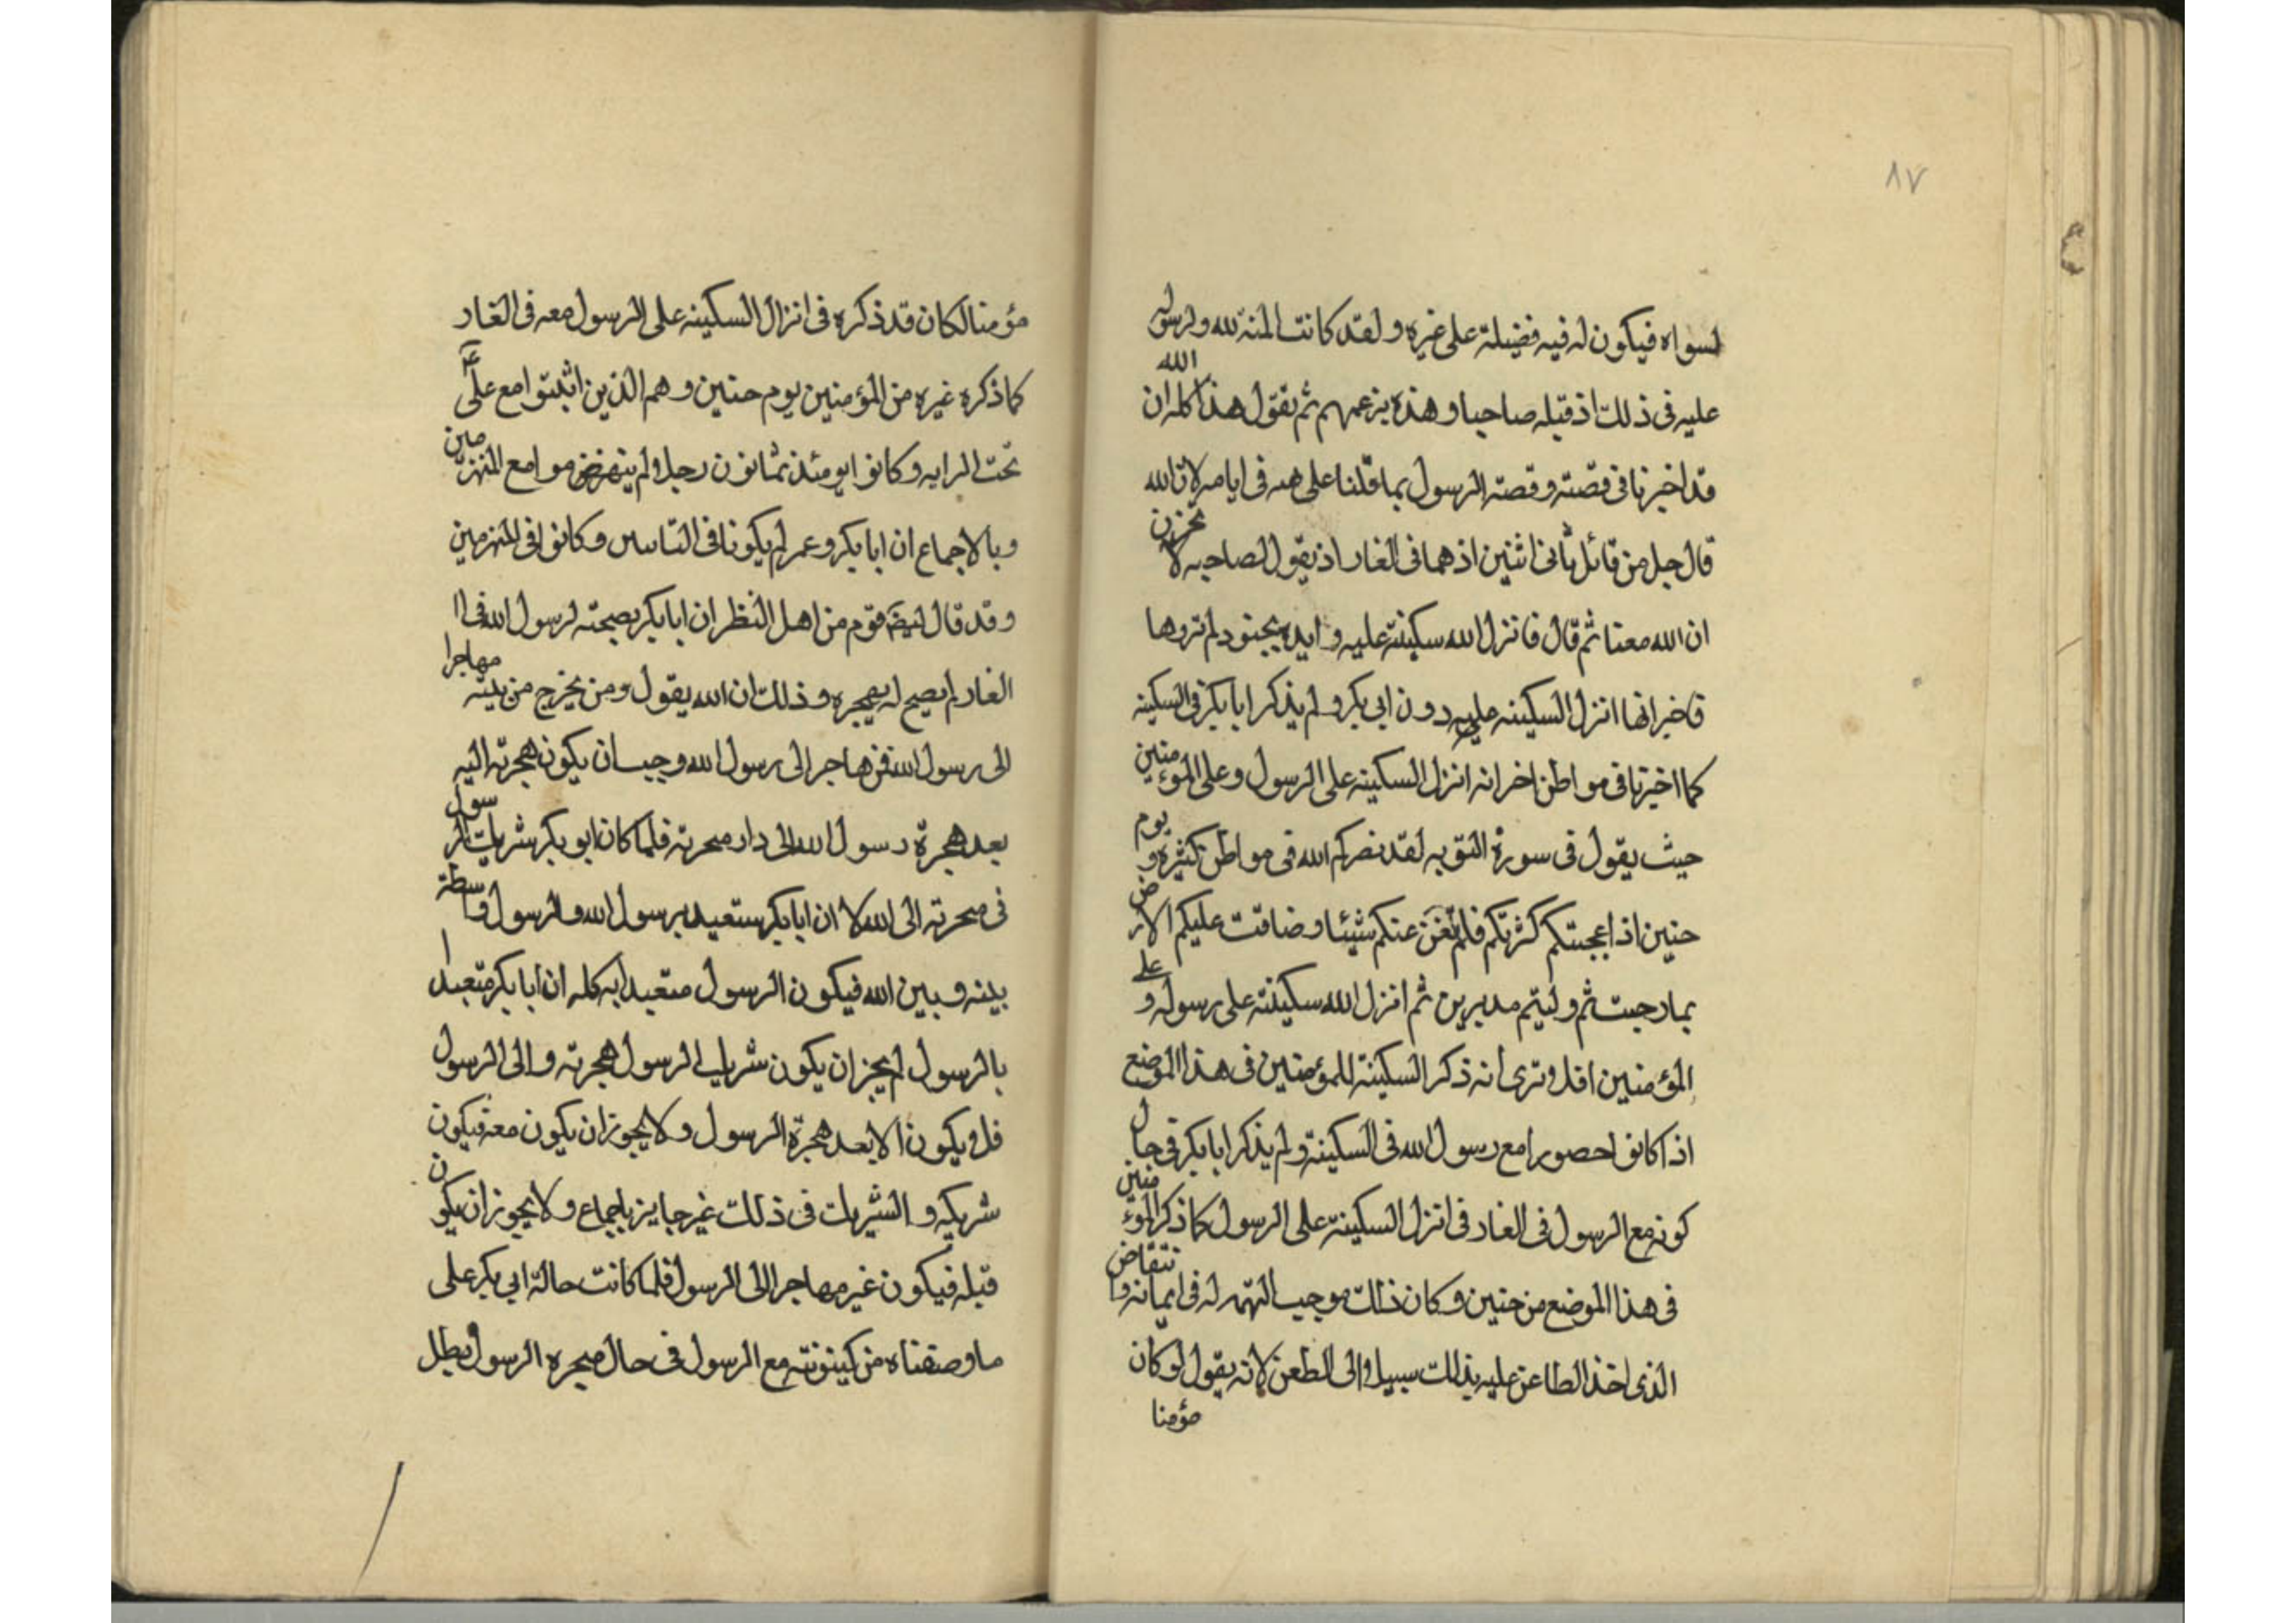 ٨٧
لسواه فيكون له فيه فضيلة على غيره ولقد كانت المنة لله ولرسوله
عليه فى ذلك اذ قبله صاحبا وهذه بزعمهم ثم يقول هذا كله ان الله
قد اخبرنا فى قصته وقصة الرسول بما قلنا على هه فى ايامه لان الله
قال جل من قائل ثانى اثنين اذ هما فى الغار اذ يقول لصاحبه لا تحزن
ان الله معنا ثم قال فانزل الله سكينته عليه وايده بجنود لم تروها
فاخبر انها انزل السكينه عليه دون ابى بكر ولم يذكر ابا بكر فى السكينه
كما اخبرنا فى مواطن اخر انه انزل السكينه على الرسول وعلى المؤمنين
حيث يقول فى سورة التوبه لقد نصركم الله فى مواطن كثيره ويوم
حنين اذ اعجبتكم كثرتكم فلم تغن عنكم شيئا وضاقت عليكم الارض
بما رحبت ثم وليتم مدبرين ثم انزل الله سكينته على رسوله وعلى
المؤمنين افلا وترى انه ذكر السكينة للمؤمنين فى هذا الموضع
اذا كانوا حصورا مع رسول الله فى السكينة ولم يذكر ابا بكر فى حال
كونه مع الرسول فى الغار فى انزل السكينة على الرسول كما ذكر المؤمنين
فى هذا الموضع من حنين وكان ذلك موجب التهمه له فى ايمانه وانتقاض
الذى اخذ الطاعن عليه بذلك سبيلا والى الطعن لانه يقول لو كان
مؤمنا
مؤمنا لكان قد ذكره فى انزال السكينه على الرسول معه فى الغار
كما ذكره غيره من المؤمنين يوم حنين وهم الذين اثبتوا مع على
تحت الرايه وكانوا يومئذ ثمانون رجلا ولم ينهزموا مع المنهزمين
وبالاجماع ان ابا بكر وعمر لم يكونا فى الناس وكانوا فى المنهزمين
وقد قال ايضا قوم من اهل النظر ان ابا بكر بصحبته لرسول الله فى ا
الغار لم يصح له هجره وذلك ان الله يقول ومن يخرج من بيته مهاجرا
الى رسول الله فمن هاجر الى رسول الله وجب ان يكون هجرته اليه
بعد هجرة رسول الله الى دار هجرته فلما كان ابو بكر شريك الرسول
فى هجرته الى الله لا ان ابا بكر ستعبد برسول الله والرسول واسطة
بينه وبين الله فيكون الرسول متعبدا به كله ان ابا بكر متعبدا
بالرسول لم يجز ان يكون شريك الرسول هجرته والى الرسول
فلا ويكون الا بعد هجرة الرسول ولا يجوز ان يكون معه فيكون
شريكه والشريك فى ذلك غير جايز باجماع ولا يجوز ان يكون
قبله فيكون غير مهاجرا الى الرسول فلما كانت حالة ابى بكر على
ما وصفناه من كينونته مع الرسول فى حال هجره الرسول بطل